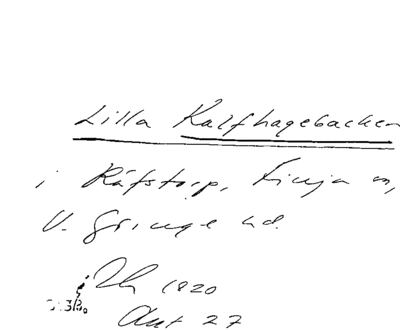 Lilla Kalfhagebacken
i Räfstorp, Finja sn,
V. Göinge hd.
1820
Akt 27